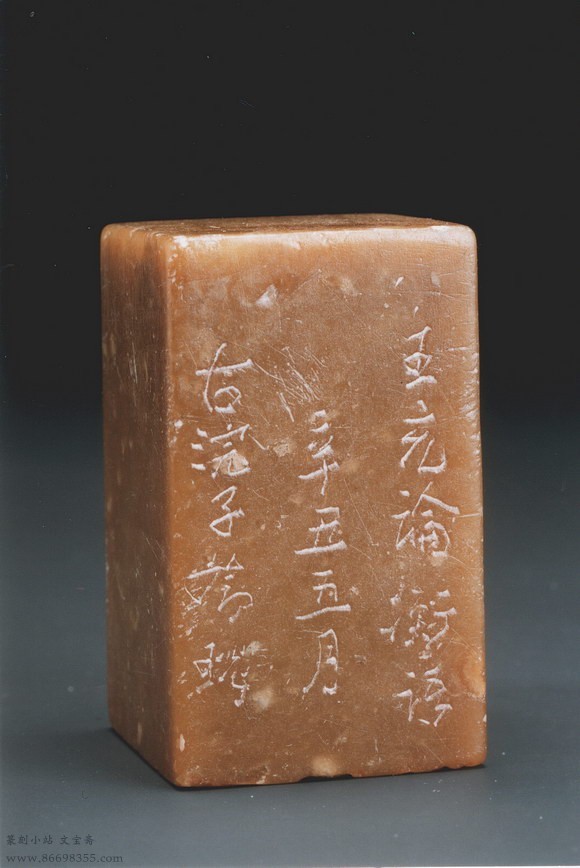 王充論衡語
辛丑五月
子
篆刻小站 文宝斋
www.86698355.com